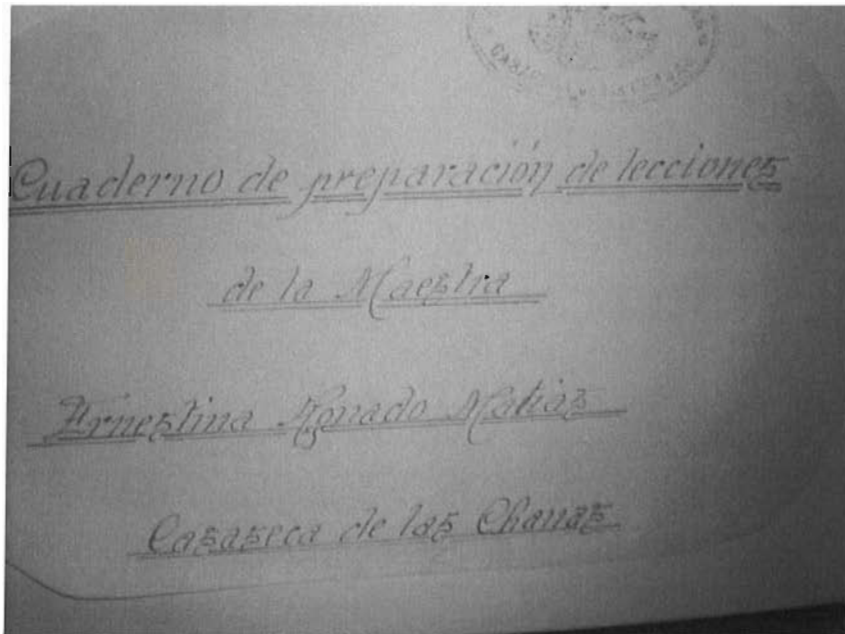 Cuaderno de preparación de lecciones
de la Maestra
Ernestina Matias
Casaseca de las Chanas